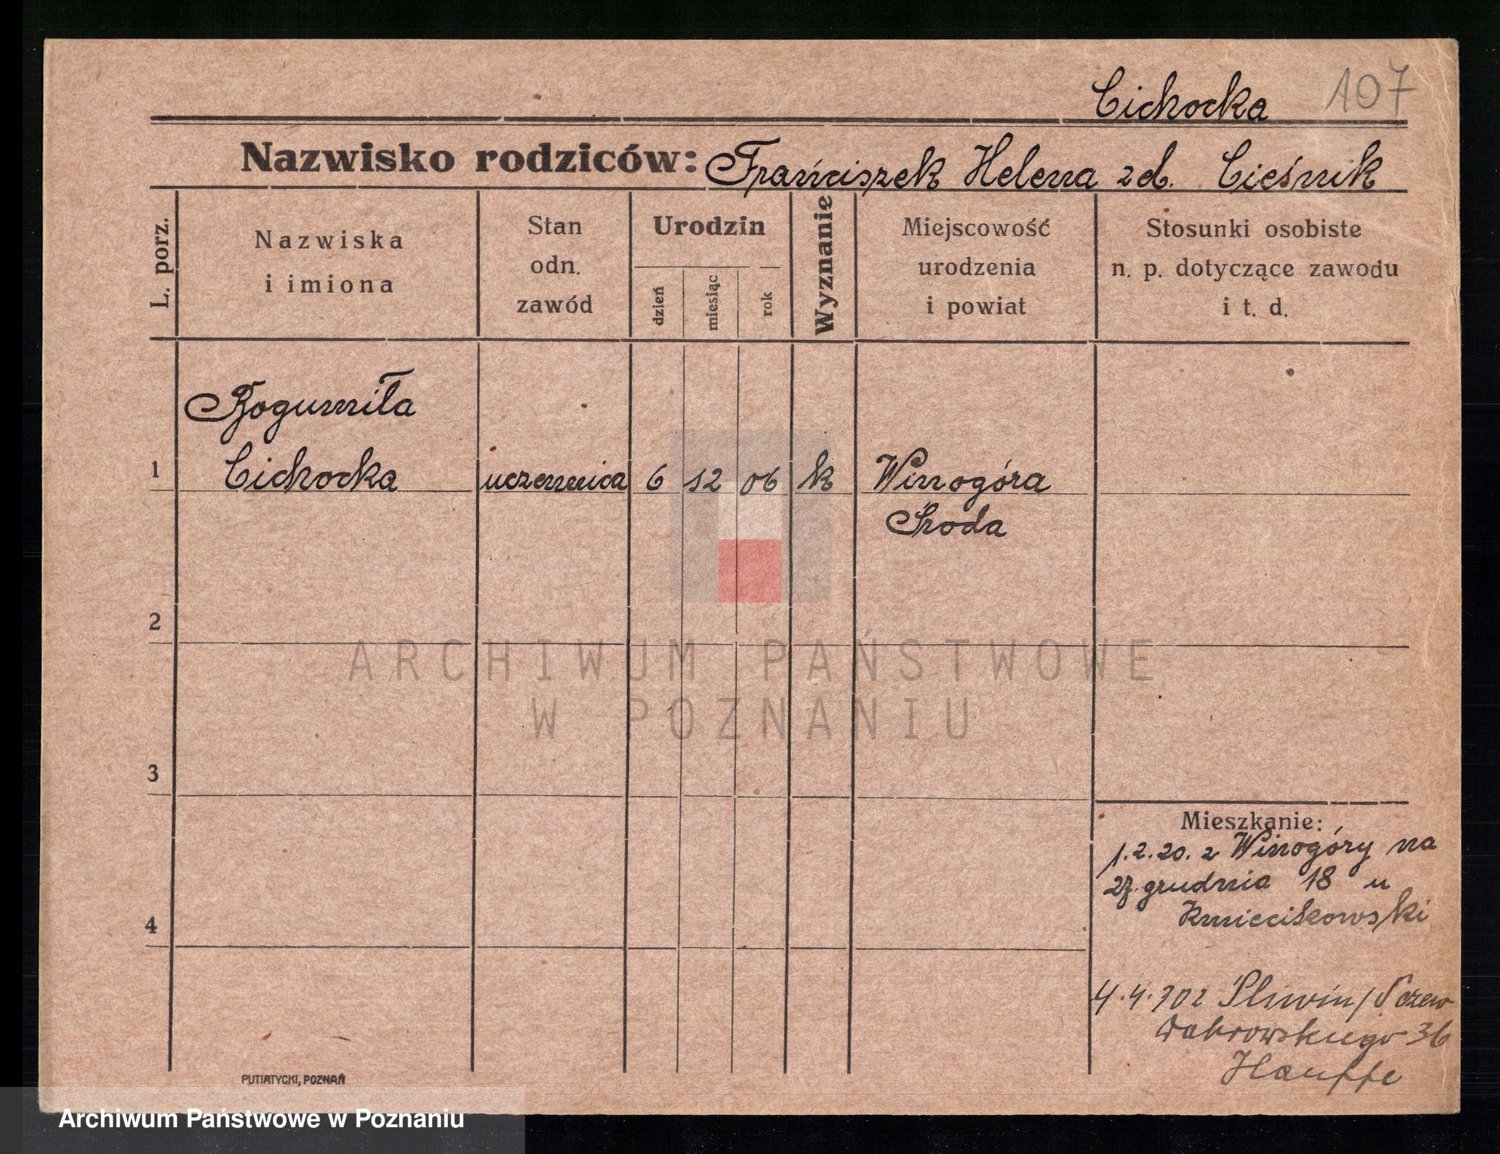 Cichocka 107
Nazwisko rodziców: Franciszek Helena zd. Cieśnik
L. porz.
Nazwiska
i imiona
Stan
odn.
zawód
Urodzin
dzień
miesiąc
rok
Wyznanie
Miejscowość
urodzenia
i powiat
Stosunki osobiste
n. p. dotyczące zawodu
i t. d.
Bogumiła
1 Cichocka uczennica 6 12 06 k Winogóra
Środa
2
ARCHIWUM PAŃSTWOWE
W POZNANIU
3
Mieszkanie:
1.2.20. z Winogóry na
27. grudnia 18 u
Kmiecikowski
4
4.4.
Dabrowskiego 36
Hauffe
PUTIATYCKI, POZNAŃ
Archiwum Państwowe w Poznaniu